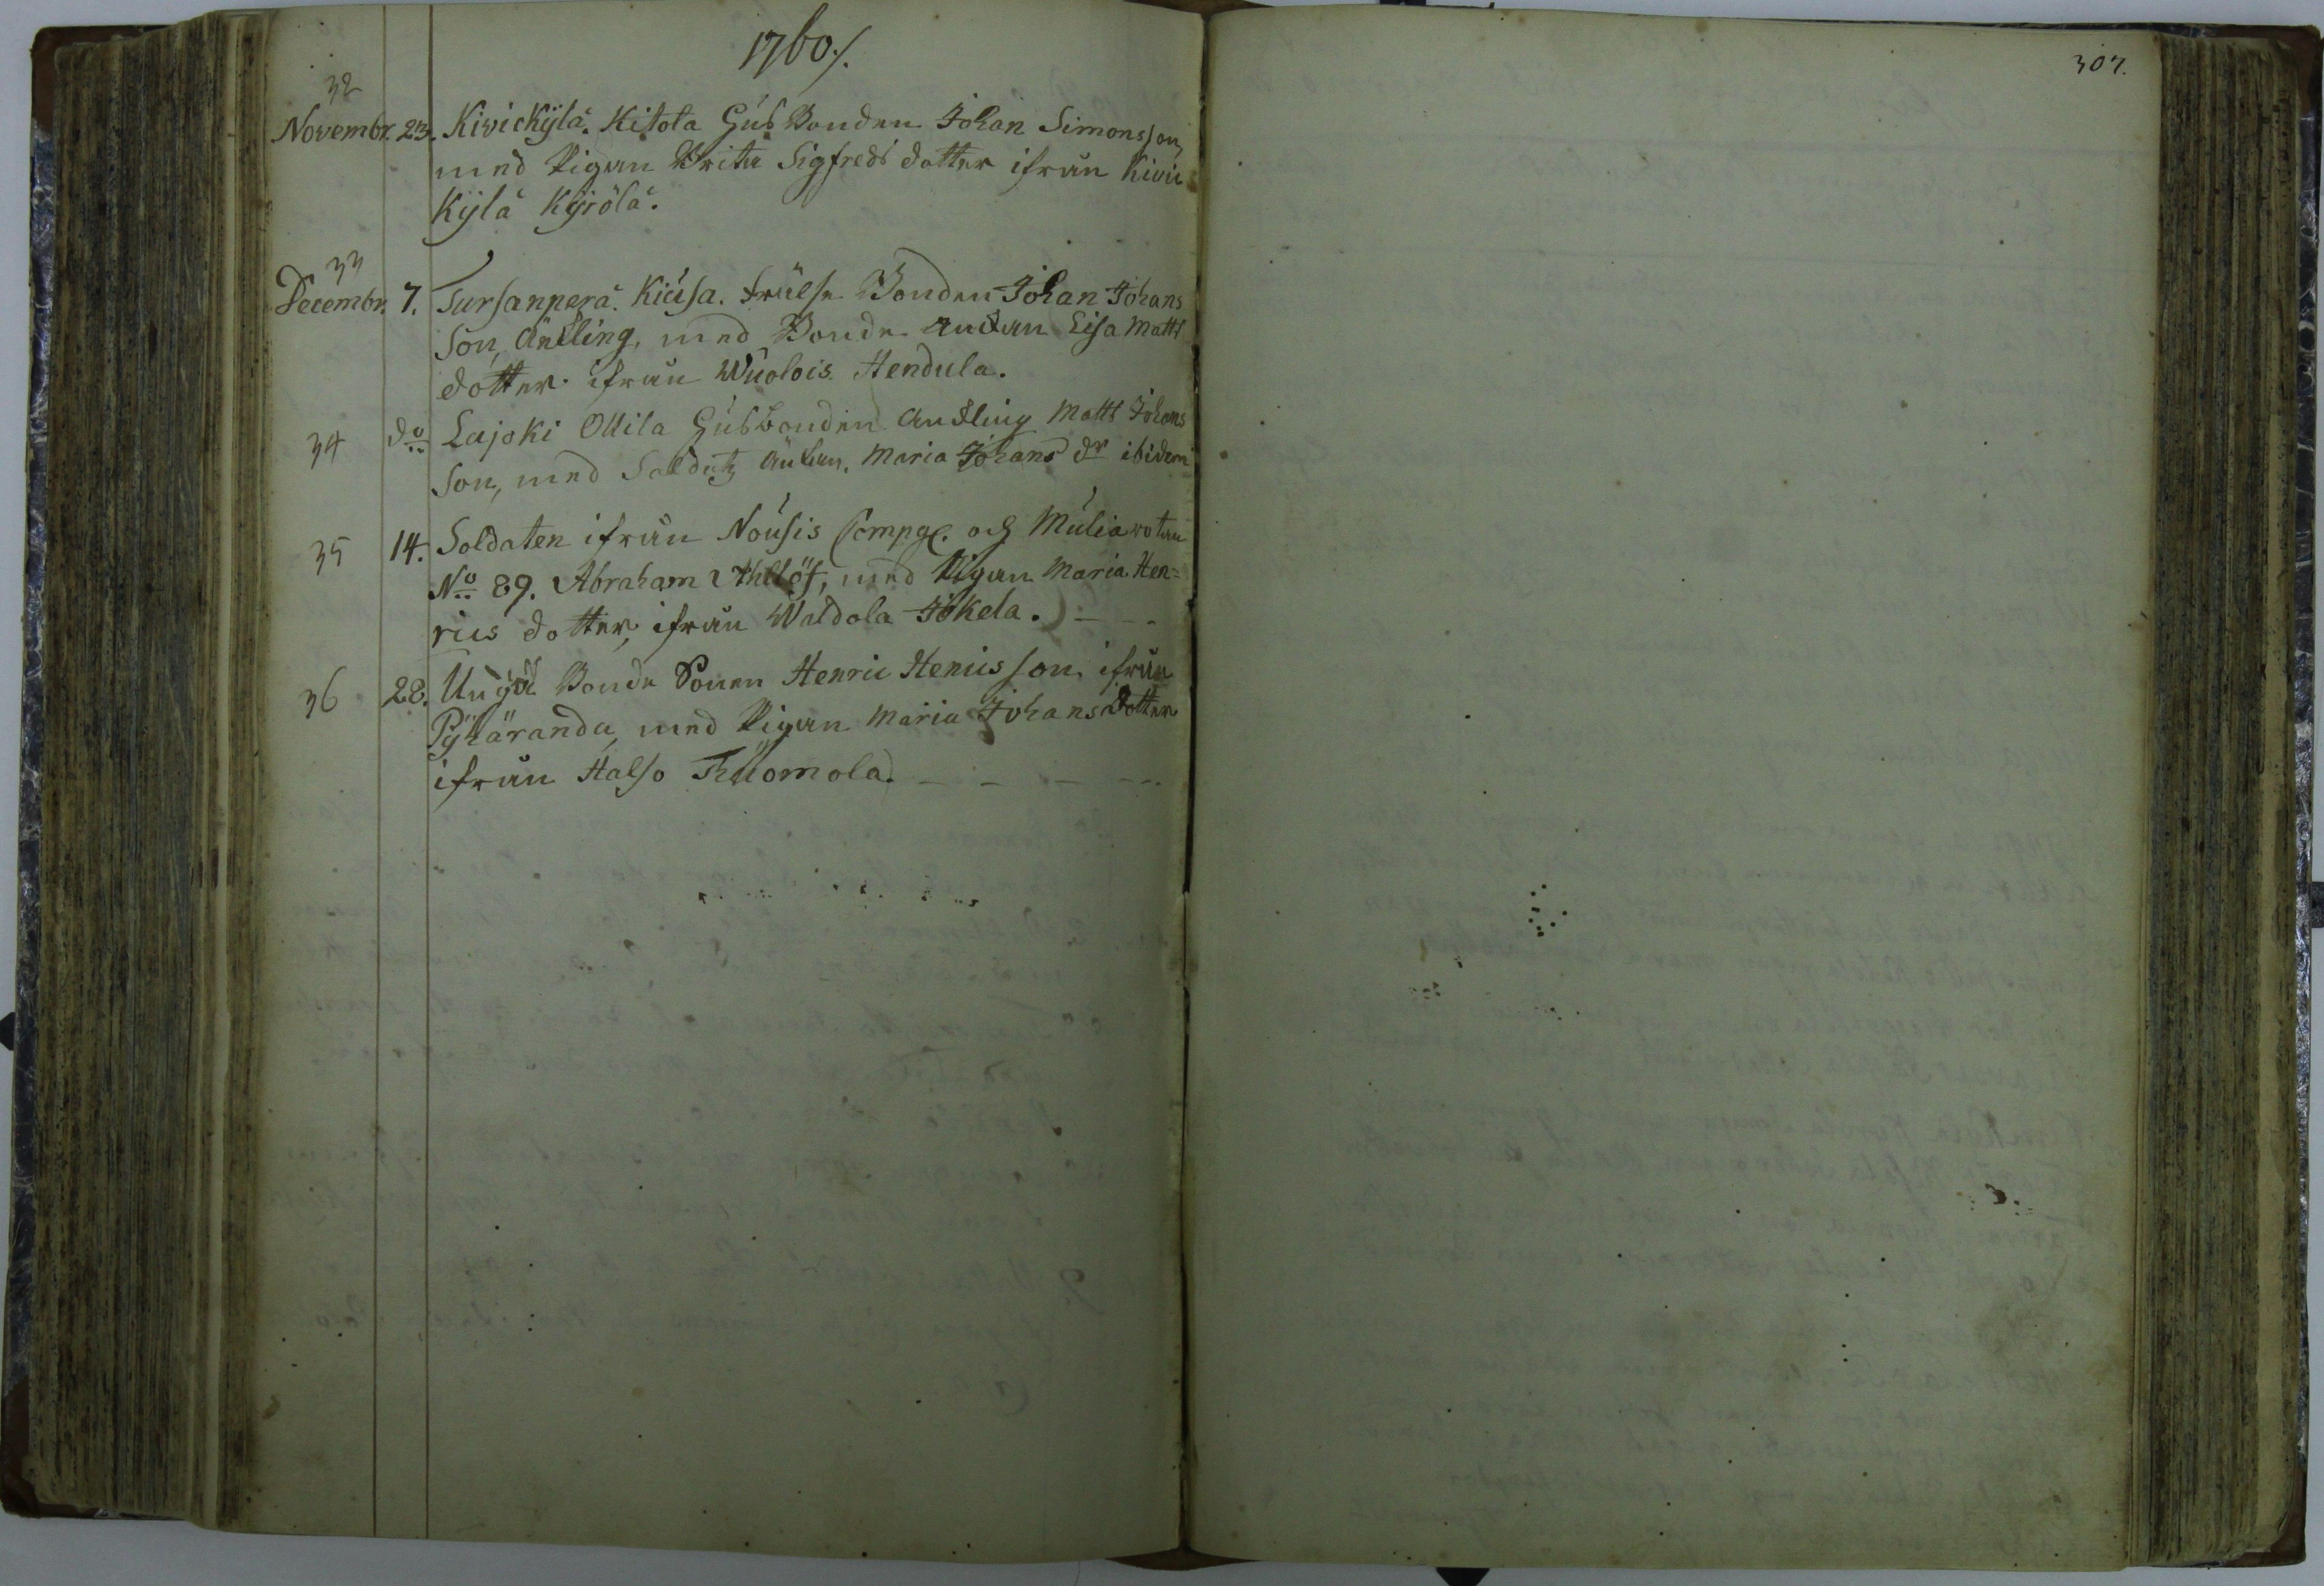 1760 /.
32
Novembr. 23. Kivickylä. Kitola Gubbonden Johan Simonsson,
med Pigan Brita Sigfreds dotter ifrån Kivic
Kylä Kyrölä.
33
Decembr. 7. Tursanperä. Kiusa. frälse Bonden Johan Johans
Son, Änkling, med Bonde Enkan Lisa Matts
dotter ifrån Wuolois Hendula.
34 do Lajoki Ollila Gubbonden Änkling Matts Johans
Son, med Soldatz Änkan, Maria Johans dr ibidem
35 14. Soldaten ifrån Nousis Compg. och Muliarotan
No 89. Abraham Ahllöf, med Pigan Maria Hen=
rics dotter, ifrån Waldola Jokela.
36 28. Unga Bonde Sonen Henric Henricsson ifrån
Pyhäranda, med Pigan Maria Johans dotter
ifrån Halso Tuomola.
307.